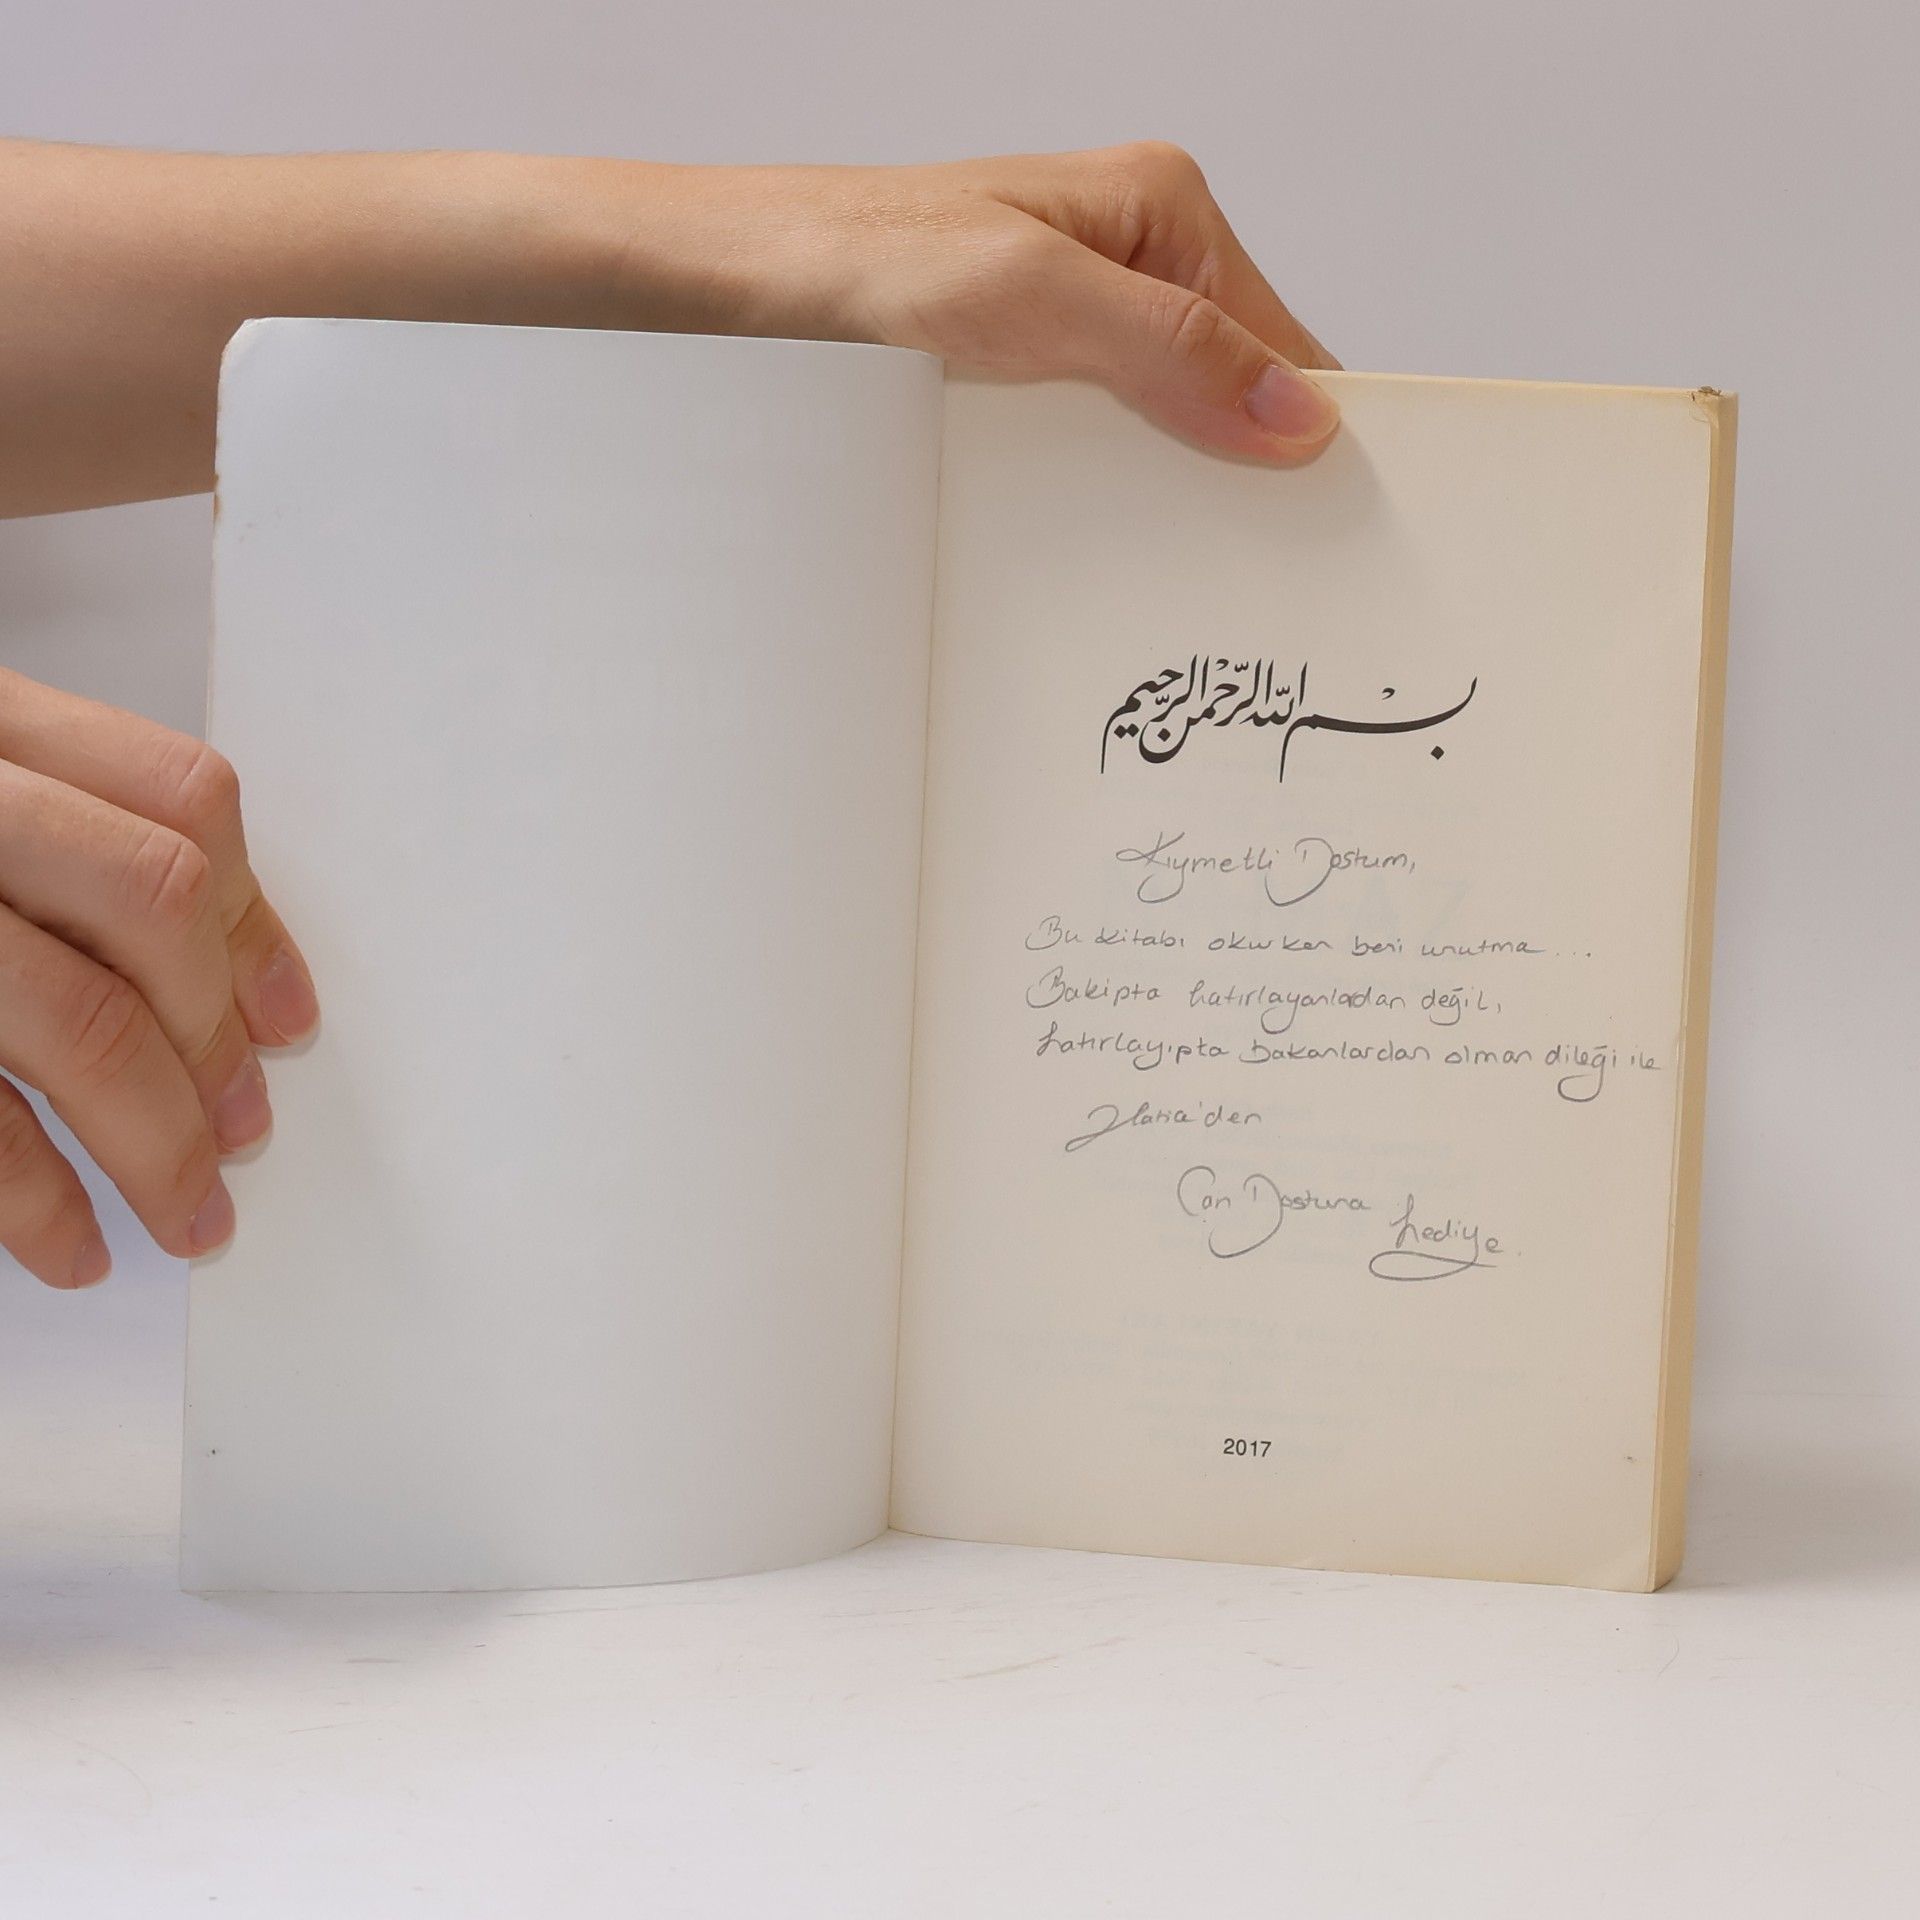 بِسْمِ اللّٰهِ الرَّحْمٰنِ الرَّحِيمِ
Kıymetli Dostum,
Bu kitabı okurken beni unutma...
Bakıpta hatırlayanlardan değil,
hatırlayıpta bakanlardan olman dileği ile
Can Dostuna hediye.
2017